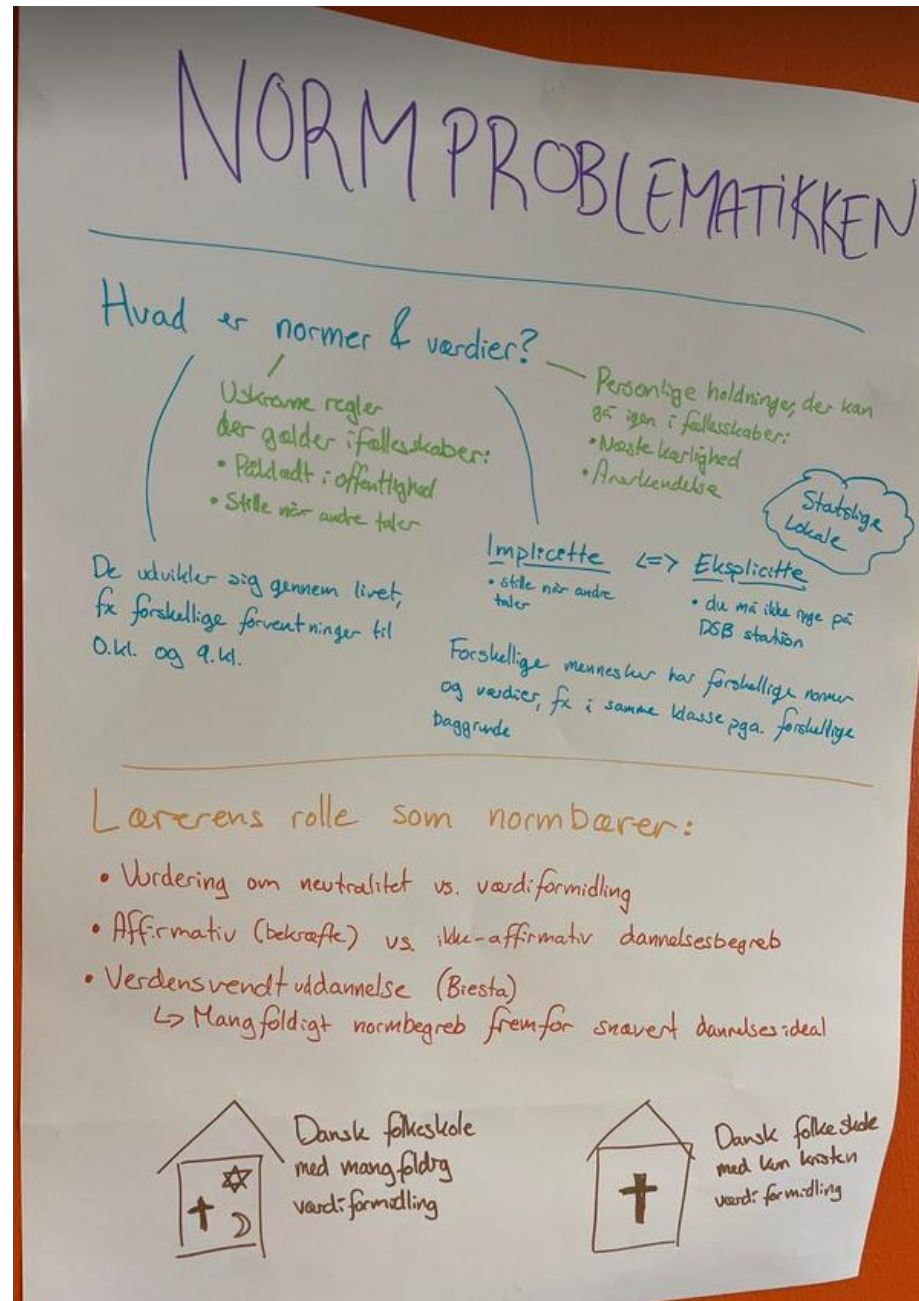 NORMPROBLEMATIKKEN
Hvad er normer & værdier?
Uskrevne regler
der gælder i fællesskaber:
• Påklædt i offentlighed
• Stille når andre taler
Personlige holdninger, der kan
gå igen i fællesskaber:
• Næstekærlighed
• Anerkendelse
Statslige
Lokale
De udvikler sig gennem livet,
fx forskellige forventninger til
0.kl. og 9.kl.
Implicitte <=> Eksplicitte
• stille når andre
taler
• du må ikke ryge på
DSB station
Forskellige mennesker har forskellige normer
og værdier, fx i samme klasse pga. forskellige
baggrunde
Lærerens rolle som normbærer:
• Vurdering om neutralitet vs. værdiformidling
• Affirmativ (bekræfte) vs. ikke-affirmativ dannelsesbegreb
• Verdensvendt uddannelse (Biesta)
↳ Mangfoldigt normbegreb fremfor snævert dannelsesideal
Dansk folkeskole
med mangfoldig
værdiformidling
Dansk folkeskole
med kun kristen
værdiformidling